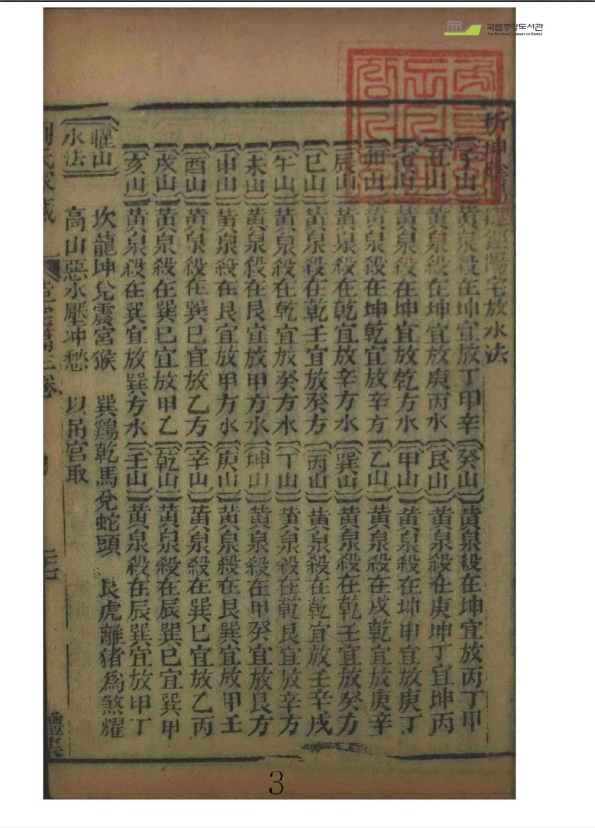 국립중앙도서관
THE NATIONAL LIBRARY OF KOREA
陽宅放水法
子山 黃泉殺在坤宜放丁甲辛 癸山 黃泉殺在坤宜放丙丁甲
丑山 黃泉殺在坤宜放庚丙水 艮山 黃泉殺在庚坤丁宜坤丙
寅山 黃泉殺在坤宜放乾方水 甲山 黃泉殺在坤甲宜放庚丁
卯山 黃泉殺在坤乾宜放辛方 乙山 黃泉殺在戌乾宜放庚辛
辰山 黃泉殺在乾宜放辛方水 巽山 黃泉殺在乾壬宜放癸方
巳山 黃泉殺在乾壬宜放癸方 丙山 黃泉殺在乾宜放壬辛戌
午山 黃泉殺在乾宜放癸方水 丁山 黃泉殺在乾艮宜放辛方
未山 黃泉殺在艮宜放甲方水 坤山 黃泉殺在甲癸宜放艮方
申山 黃泉殺在艮宜放甲方水 庚山 黃泉殺在艮巽宜放甲壬
酉山 黃泉殺在巽巳宜放乙方 辛山 黃泉殺在巽巳宜放乙丙
戌山 黃泉殺在巽巳宜放甲乙 乾山 黃泉殺在辰巽巳宜巽甲
亥山 黃泉殺在巽宜放巽方水 壬山 黃泉殺在辰巽宜放甲丁
曜山水法 坎龍坤兔震宮猴 巽鷄乾馬兌蛇頭 艮虎離猪為煞耀
高山惡水壓冲愁 以吊宮取
禮集
3